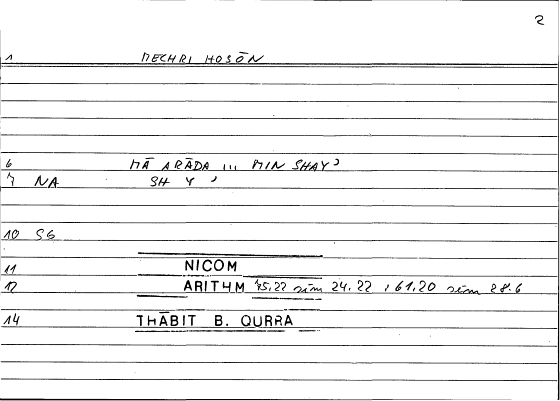 2
1 MECHRI HOSŌN
6 MĀ ARĀDA ... MIN SHAY'
7 NA SH Y '
10 SG
11 NICOM
12 ARITH.M 45.22 sim 24.22 , 61.20 sim 28.6
14 THĀBIT B. QURRA